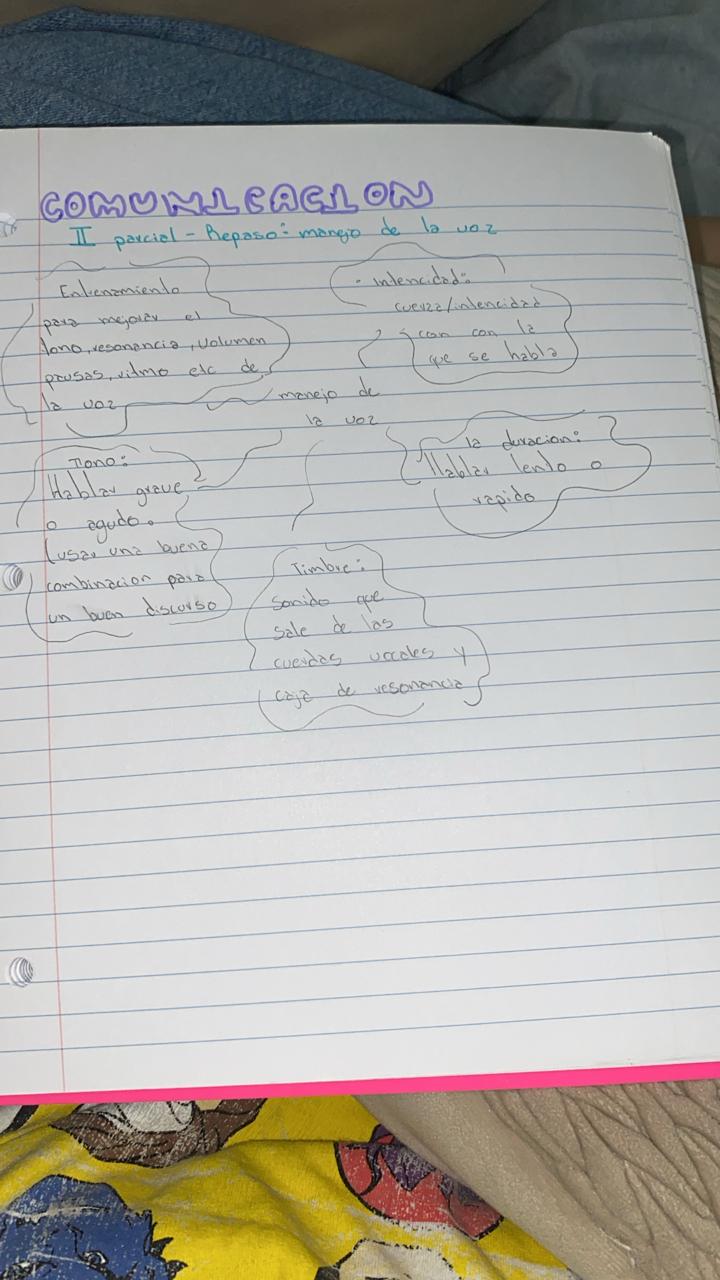 COMUNICACION
II parcial - Repaso: manejo de la voz
Entrenamiento
para mejorar el
tono, resonancia, volumen
pausas, ritmo etc de
la voz
- intencidad:
cuerza/intencidad
con con la
que se habla
manejo de
la voz
Tono:
Hablar grave
o agudo.
(usar una buena
combinacion para
un buen discurso
la duracion:
Hablar lento o
rapido
Timbre:
sonido que
sale de las
cuerdas vocales y
caja de resonancia